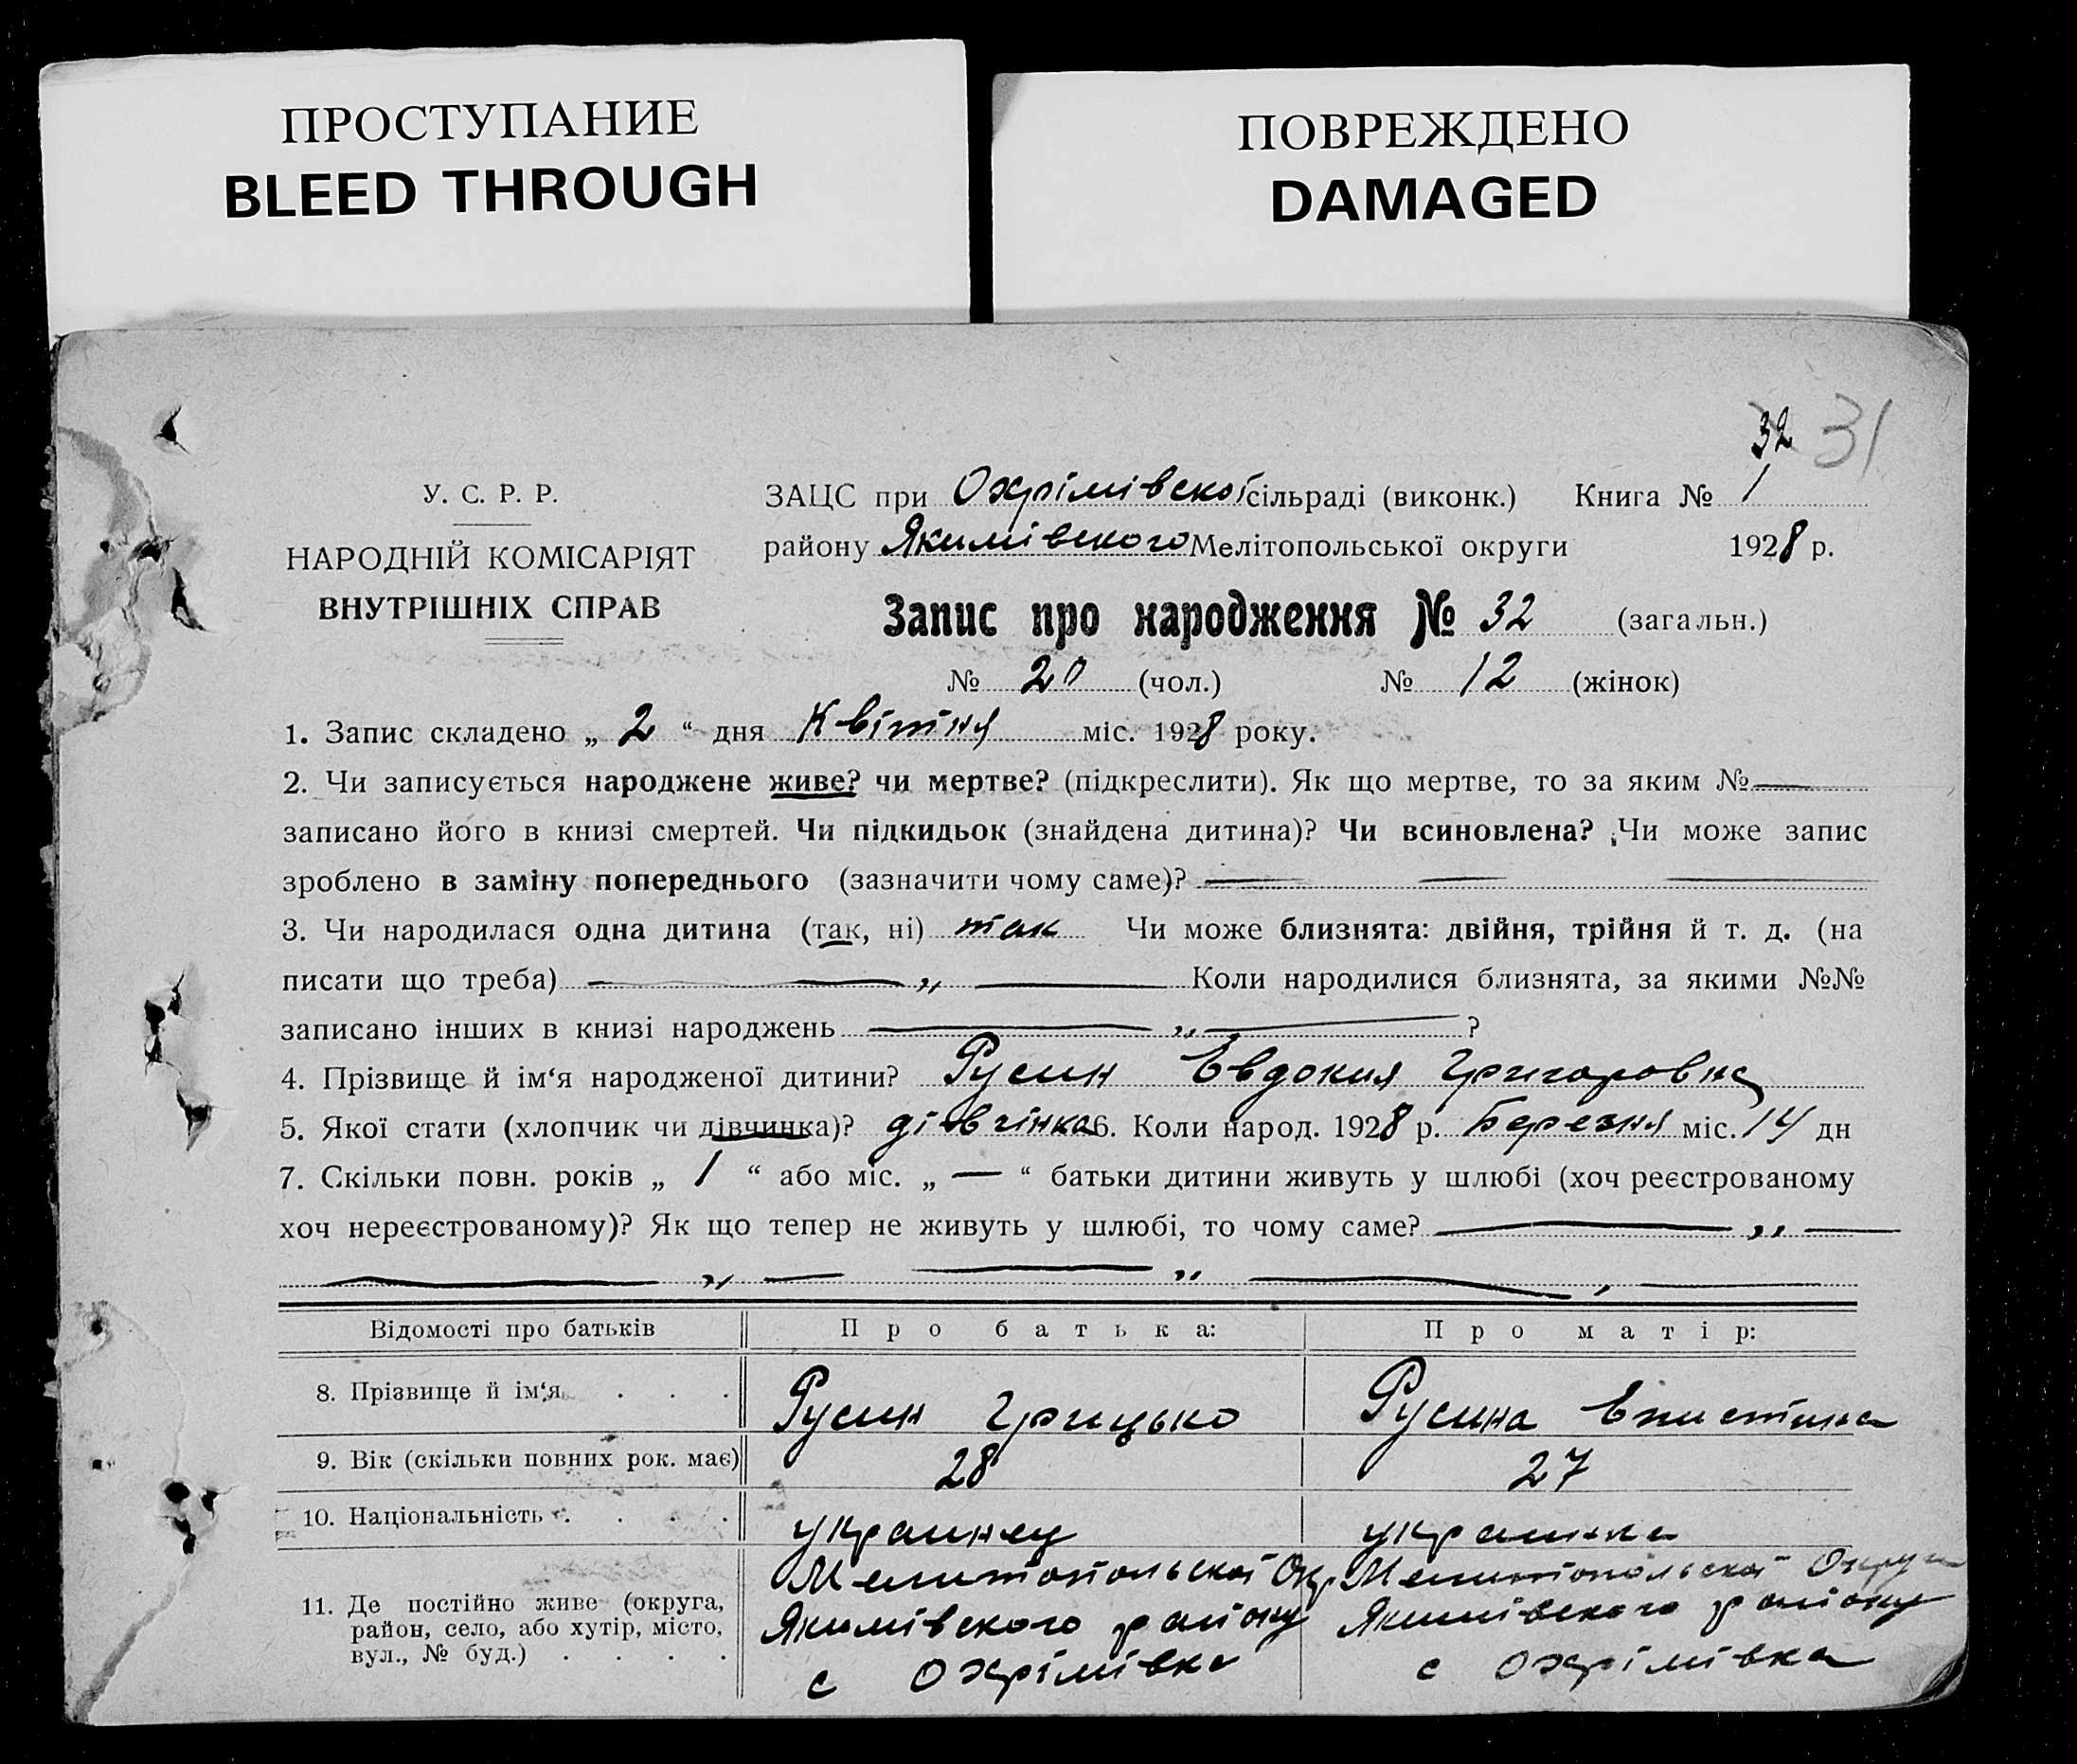 ПРОСТУПАНИЕ
BLEED THROUGH
ПОВРЕЖДЕНО
DAMAGED
32 31
У. С. Р. Р.
НАРОДНІЙ КОМІСАРІЯТ
ВНУТРІШНІХ СПРАВ
ЗАЦС при Охрімівскої сільраді (виконк.) Книга № 1
району Якимівского Мелітопольської округи 1928 р.
Запис про народження № 32 (загальн.)
№ 20 (чол.) № 12 (жінок)
1. Запис складено „ 2 “ дня Квітня міс. 1928 року.
2. Чи записується народжене живе? чи мертве? (підкреслити). Як що мертве, то за яким № —
записано його в книзі смертей. Чи підкидьок (знайдена дитина)? Чи всиновлена? Чи може запис
зроблено в заміну попереднього (зазначити чому саме)? — — —
3. Чи народилася одна дитина (так, ні) так Чи може близнята: двійня, трійня й т. д. (на
писати що треба) — — „ — Коли народилися близнята, за якими №№
записано інших в книзі народжень — „ — ?
4. Прізвище й ім‘я народженої дитини? Русин Евдокия Григоровна
5. Якої стати (хлопчик чи дівчинка)? дівчінка 6. Коли народ. 1928 р. Березня міс. 14 дн
7. Скільки повн. років „ 1 “ або міс. „ — “ батьки дитини живуть у шлюбі (хоч реєстрованому
хоч нереєстрованому)? Як що тепер не живуть у шлюбі, то чому саме? — „ —
— „ — — „ — , —
Відомості про батьків Про батька: Про матір:
8. Прізвище й ім‘я . . . Русин Грицько Русина
9. Вік (скільки повних рок. має) 28 27
10. Національність . . . . украинец украинка
11. Де постійно живе (округа,
район, село, або хутір, місто,
вул., № буд.) . . . .
Мелитопольскої Окр.
Якимівского району
с Охрімівка
Мелитопольскої Округи
Якимівского району
с Охрімівка